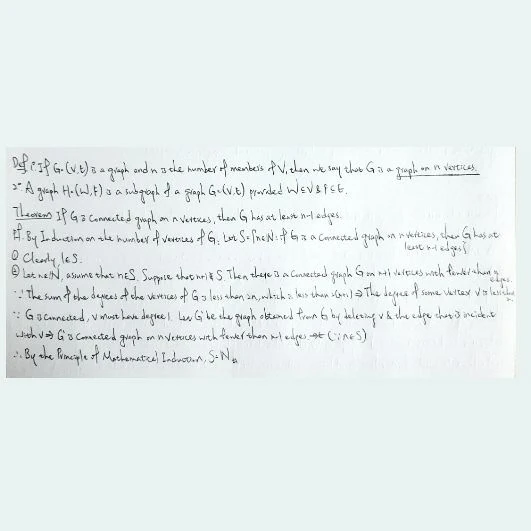 Def 1° If G=(V,E) is a graph and n is the number of members of V, then we say that G is a graph on n vertices.
2° A graph H=(W,F) is a subgraph of a graph G=(V,E) provided W⊆V & F⊆E.
Theorem If G is connected graph on n vertices, then G has at least n-1 edges.
Pf. By Induction on the number of vertices of G. Let S={n∈N: if G is a connected graph on n vertices, then G has at least n-1 edges}
① Clearly 1∈S.
② Let n∈N, assume that n∈S. Suppose that n+1∉S. Then there is a connected graph G on n+1 vertices with fewer than n edges.
∵ The sum of the degrees of the vertices of G is less than 2n, which is less than 2(n+1) ⇒ The degree of some vertex v is less than
∵ G is connected, v must have degree 1. Let G' be the graph obtained from G by deleting v & the edge that is incident
with v ⇒ G' is connected graph on n vertices with fewer than n-1 edges (∵ n∈S)
∴ By the Principle of Mathematical Induction, S=N